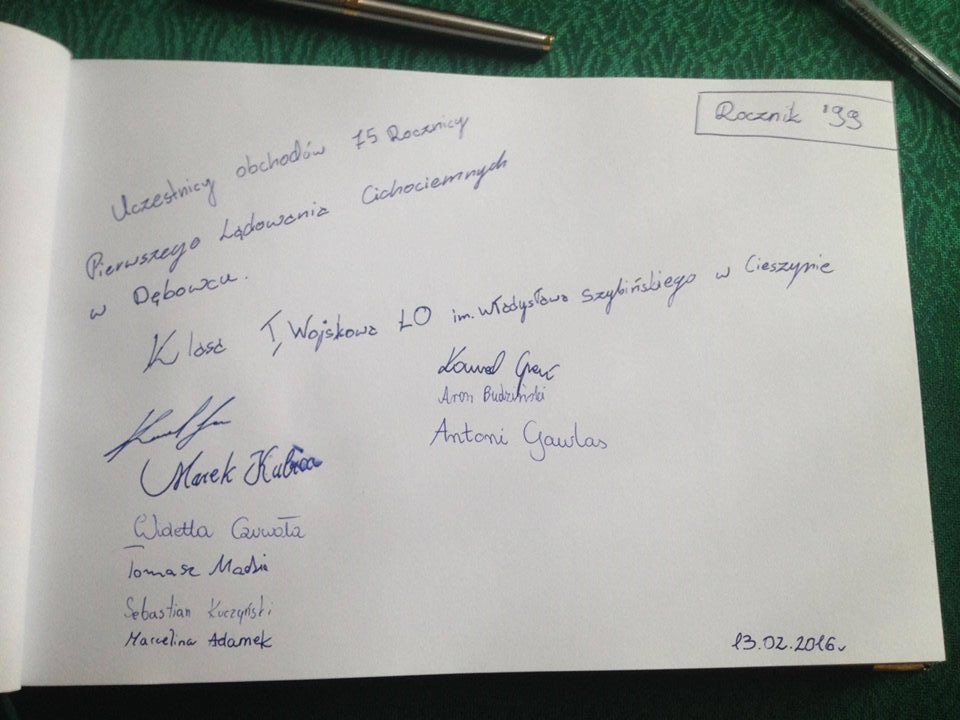 Rocznik '99
Uczestnicy obchodów 75 Rocznicy
Pierwszego Lądowania Cichociemnych
w Dębowcu.
Klasa I, Wojskowa LO im. Władysława Szybińskiego w Cieszynie
Kamil
Aron Budziński
Antoni Gawlas
Marek Kubica
Widetta
Tomasz
Sebastian Kuczyński
Marcelina Adamek
13.02.2016r